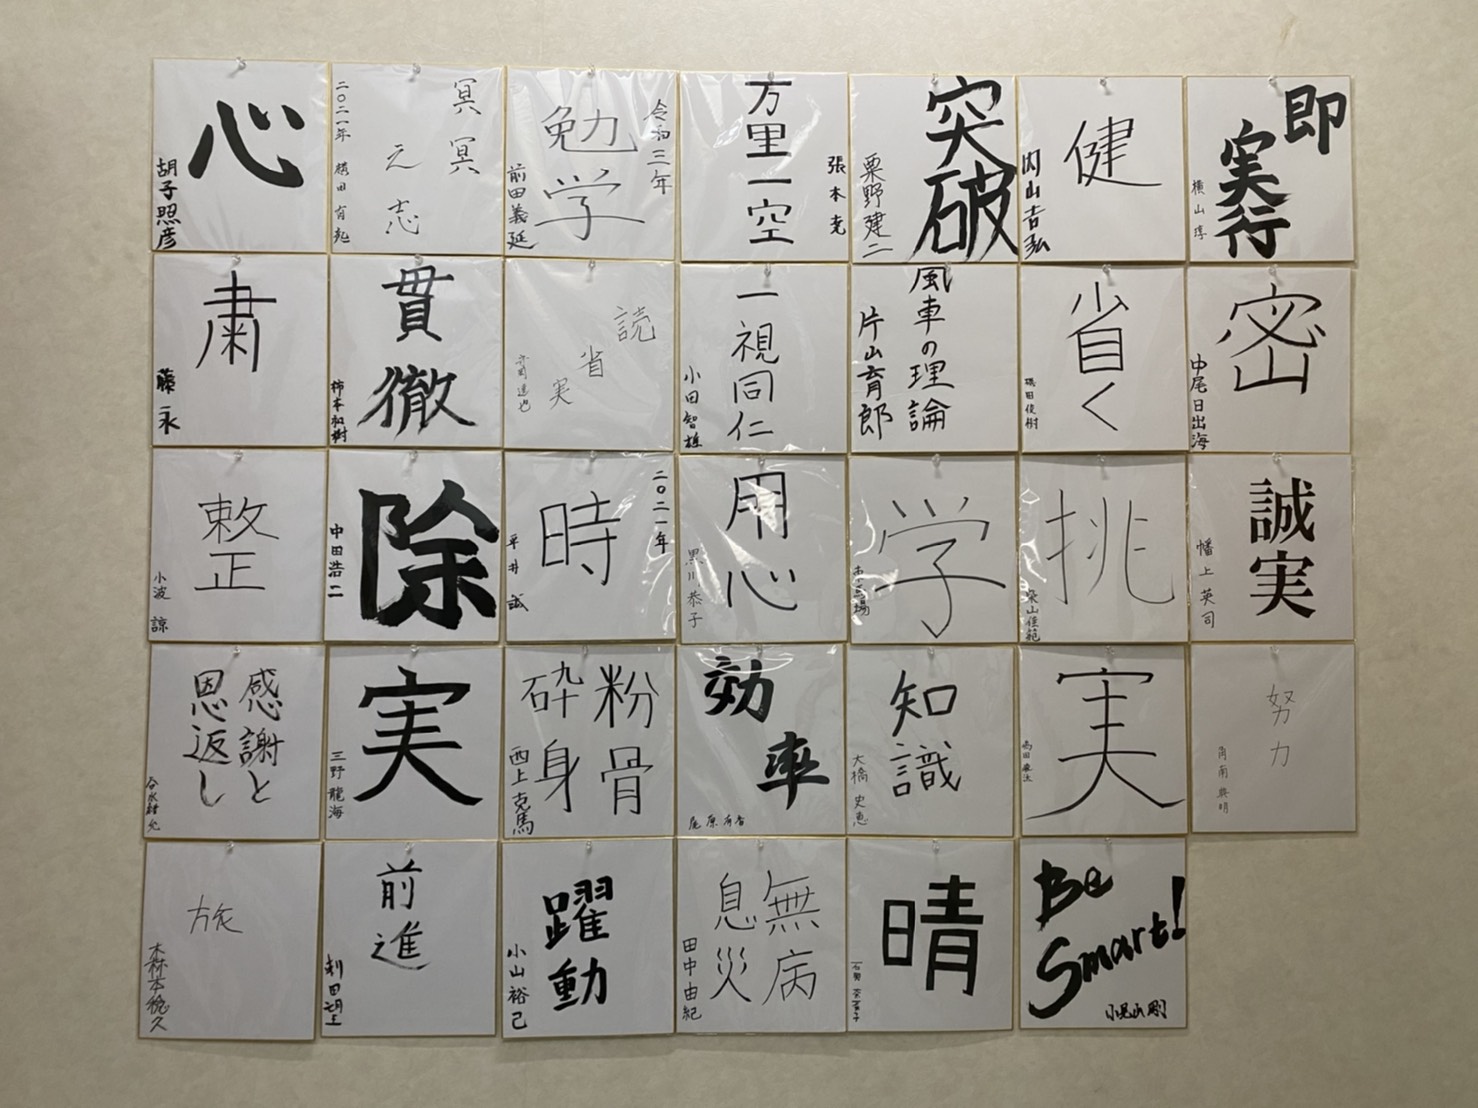 心
胡子照彦
冥冥
之志
二〇二一年
勉学
令和三年
前田義延
万里一空
張本
突破
粟野建二
健
内山吉弘
即
実行
横山 淳
粛
藤永
貫徹
柿本和樹
読
省
実
一視同仁
小田智雄
風車の理論
片山育郎
省く
磯田俊樹
密
中尾日出海
整
小波 諒
除
中田浩二
時
二〇二一年
平井 誠
用心
黒川恭子
学
挑
栄山佳範
誠実
幡上英司
感謝と
恩返し
実
三野龍海
粉骨
砕身
西上克馬
効
率
尾原有香
知識
大橋史恵
実
努力
角南典明
旅
森本悦久
前進
躍動
小山裕己
無病
息災
田中由紀
晴
Be
Smart!
小児山剛